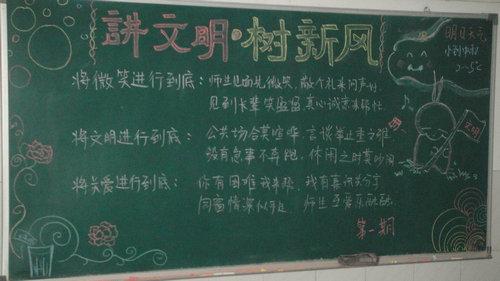 讲文明·树新风
明日天气
小到中雨
2-5℃
将微笑进行到底：师生见面见微笑，敬个礼来问声好
见到长辈笑盈盈，真心诚意来帮忙
将文明进行到底：公共场合莫喧哗，言谈举止重文雅
没有急事不奔跑，休闲之时莫吵闹
文明
将关爱进行到底：你有困难我来帮，我有喜讯共分享
同窗情深似手足，师生互爱乐融融
第一期